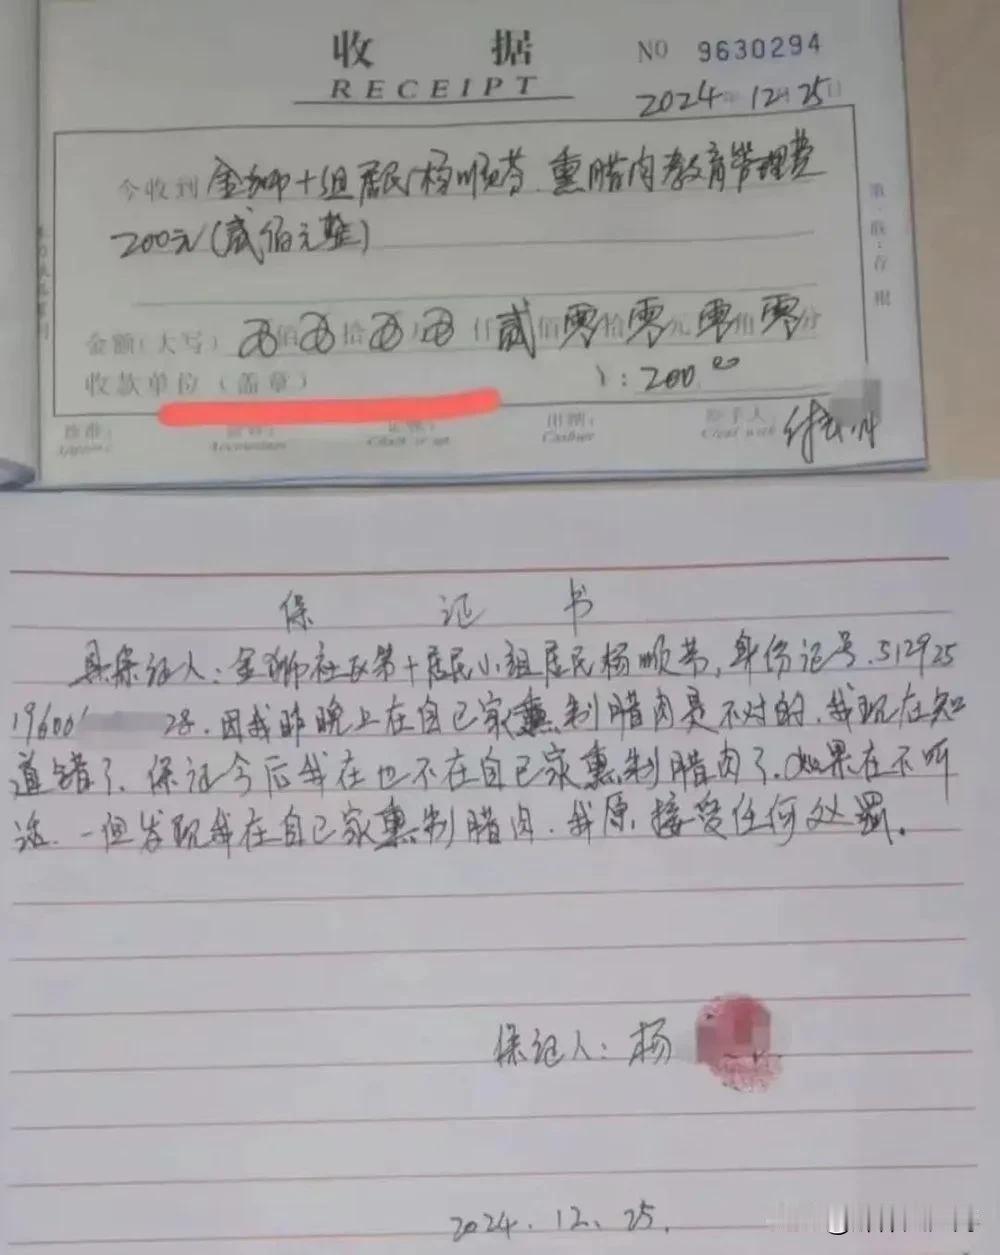 收 据
RECEIPT
NO 9630294
2024年12月25日
今收到 金狮十组居民杨顺芬.熏腊肉教育管理费
200元(贰佰元整)
金额(大写) 佰 拾 万 仟 贰 佰 零 拾 零 元 零 角 零 分
收款单位(盖章)
:200.00
第一联:存根
Accountant
Cashier
经手人:
保 证 书
具保证人:金狮社区第十居民小组居民杨顺芬,身份证号.512925
19600 28.因我昨晚上在自己家熏制腊肉是不对的.我现在知
道错了.保证今后我在也不在自己家熏制腊肉了.如果在不听
话.一但发现我在自己家熏制腊肉.我原接受任何处罚。
保证人:杨
2024.12.25.